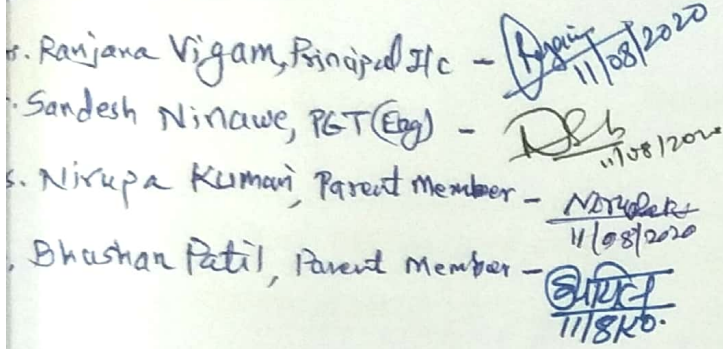 s. Ranjana Vigam, Principal I/c - 11/08/2020
. Sandesh Ninawe, PGT (Eng) - 11/08/2020
s. Nirupa Kumari, Parent Member - 11/08/2020
. Bhushan Patil, Parent Member - 11/8/20.